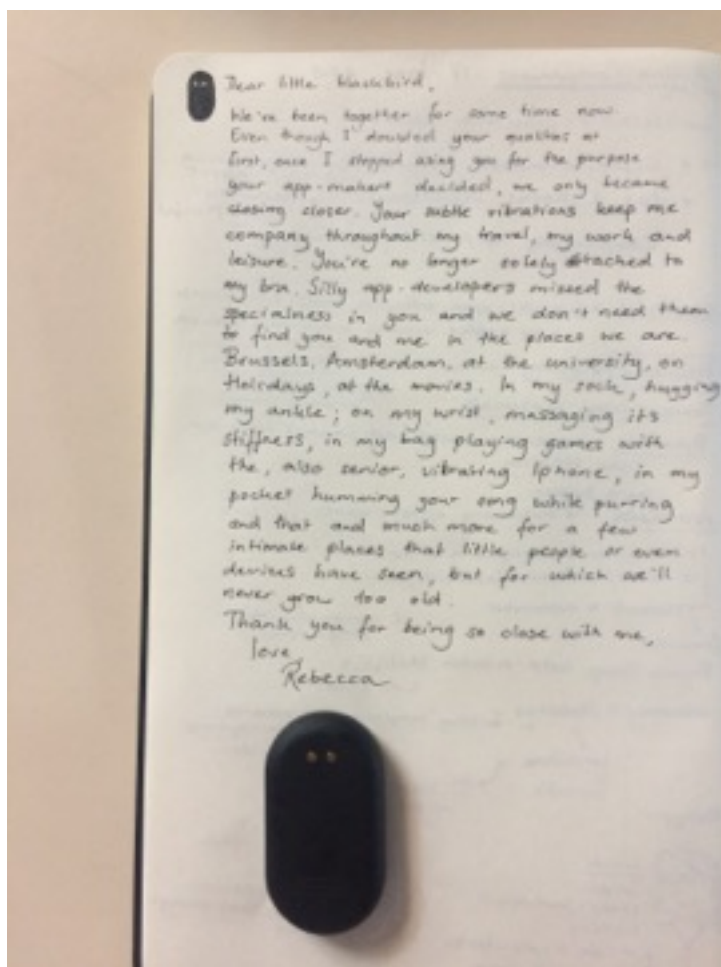 Dear little blackbird,
We've been together for some time now.
Even though I doubted your qualities at
first, once I stopped using you for the purpose
your app-makers decided, we only became
closing closer. Your subtle vibrations keep me
company throughout my travel, my work and
leisure. You're no longer solely attached to
my bra. Silly app-developers missed the
specialness in you and we don't need them
to find you and me in the places we are.
Brussels, Amsterdam, at the university, on
Holidays, at the movies. In my sock, hugging
my ankle; on my wrist, massaging its
stiffness, in my bag playing games with
the, also senior, vibrating Iphone, in my
pocket humming your song while purring
and that and much more for a few
intimate places that little people or even
devices have seen, but for which we'll
never grow too old.
Thank you for being so close with me,
love,
Rebecca